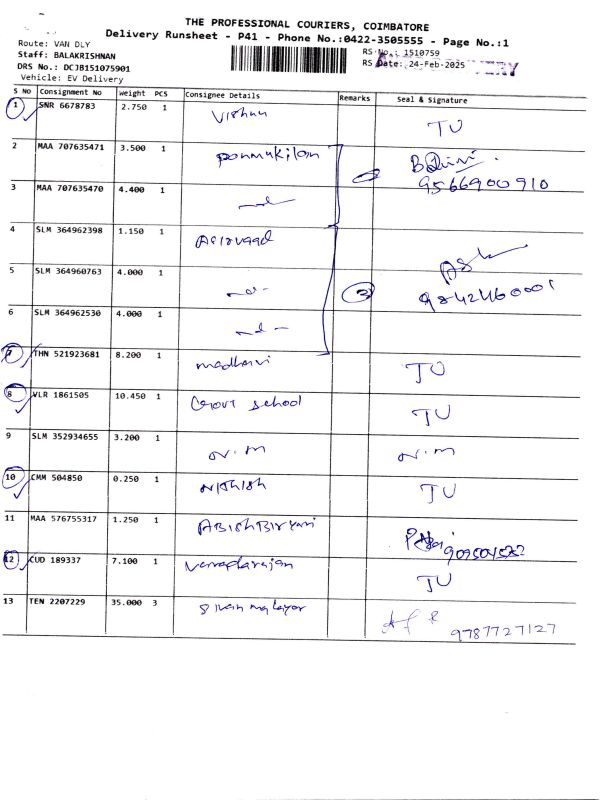 THE PROFESSIONAL COURIERS, COIMBATORE
Delivery Runsheet - P41 - Phone No.:0422-3505555 - Page No.:1
Route: VAN DLY
Staff: BALAKRISHNAN
DRS No.: DCJB151075901
Vehicle: EV Delivery
RS No.: 1510759
RS Date: 24-Feb-2025
S No Consignment No Weight PCS Consignee Details Remarks Seal & Signature
1 SNR 6678783 2.750 1 Vishnu TU
2 MAA 707635471 3.500 1 ponmukilan 9566900910
3 MAA 707635470 4.400 1
4 SLM 364962398 1.150 1
5 SLM 364960763 4.000 1 3
6 SLM 364962530 4.000 1
7 THN 521923681 8.200 1 madhavi TU
8 VLR 1861505 10.450 1 Govt school TU
9 SLM 352934655 3.200 1 N.M N.M
10 CMM 504850 0.250 1 Nithish TU
11 MAA 576755317 1.250 1
12 CUD 189337 7.100 1 Varadarajan TU
13 TEN 2207229 35.000 3 9787727127